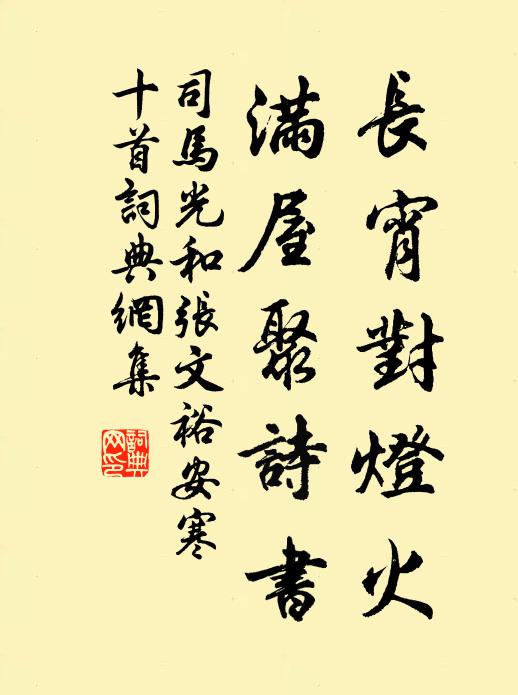 長宵對燈火
滿屋聚詩書
司馬光和張文裕安寒
十首詞典網集
詞典
网印